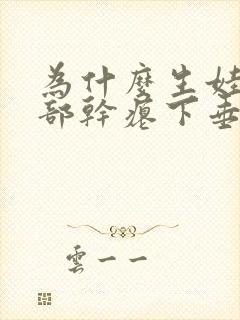 為什麼生娃
部幹癟下垂
雲一一